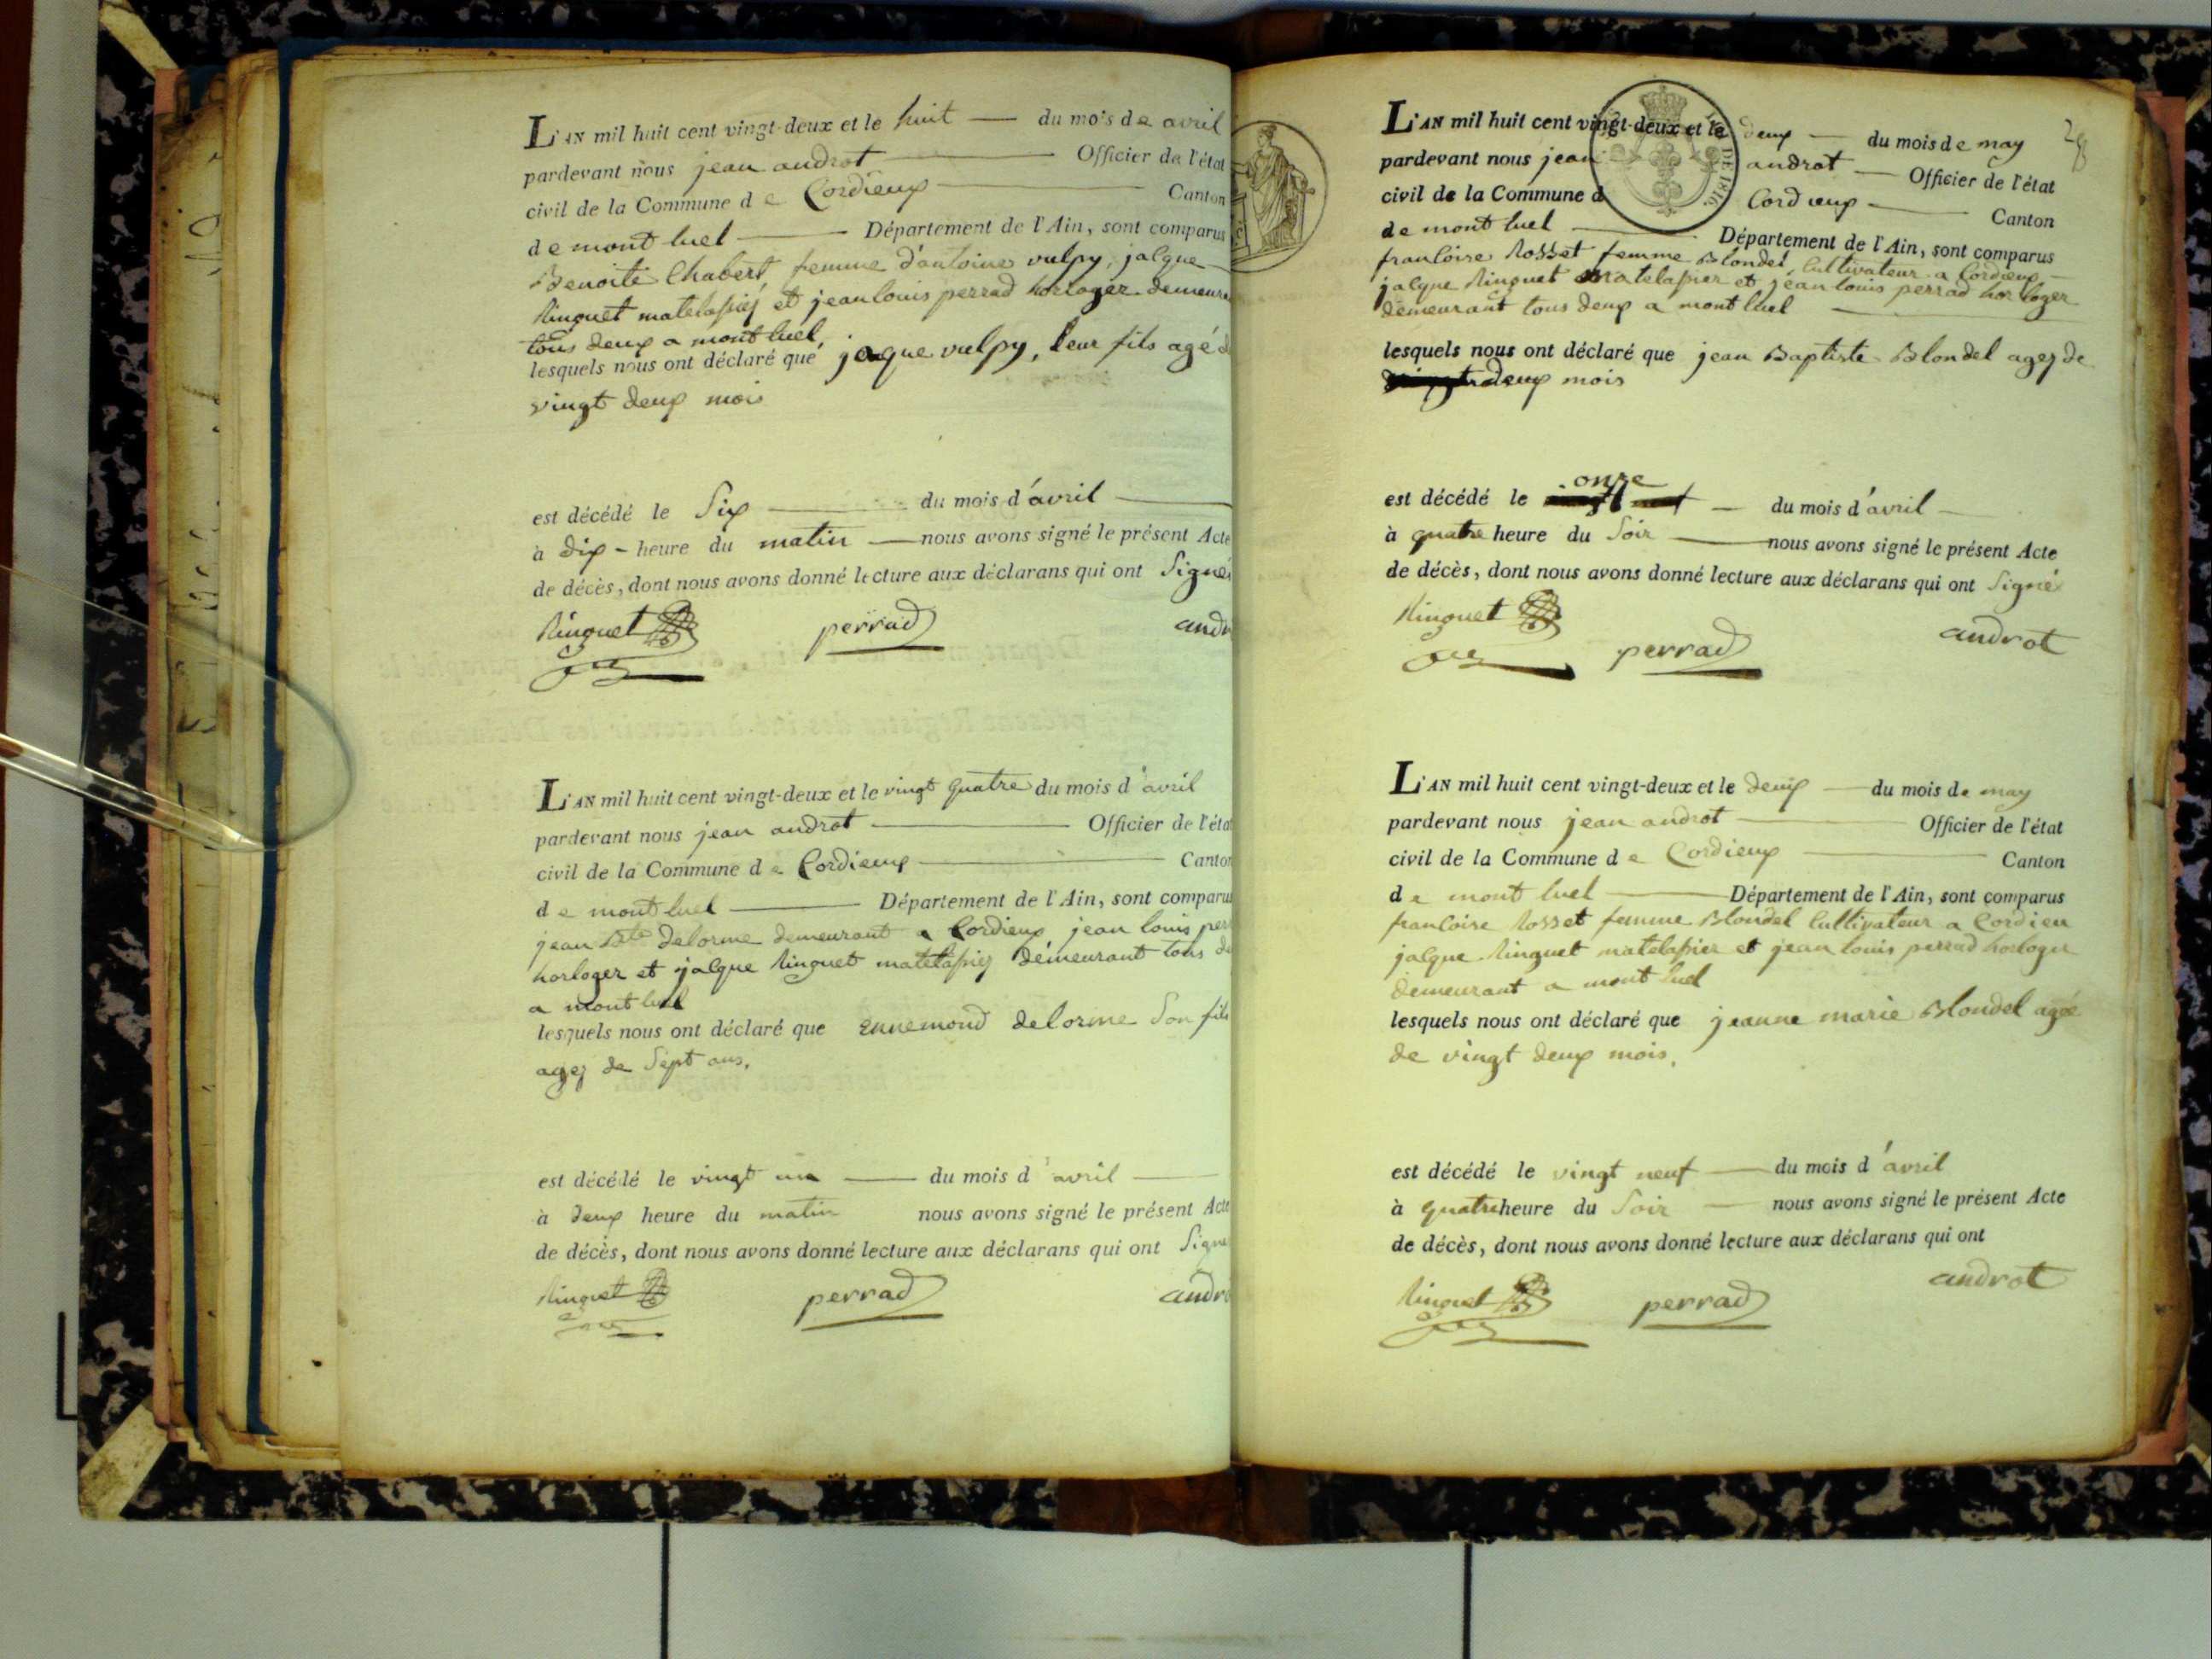 L'AN mil huit cent vingt-deux et le huit du mois de avril
pardevant nous jean androt Officier de l'état
civil de la Commune de Cordieux Canton
de mont luel Département de l'Ain, sont comparus
Benoite Chabert femme d'antoine vulpy, jalque
Ringuet matelassiez et jean louis perrad horloger demeura
tous deux a mont luel,
lesquels nous ont déclaré que jaque vulpy, leur fils agé d
vingt deux mois
est décédé le Six du mois d'avril
à dix heure du matin nous avons signé le présent Acte
de décès, dont nous avons donné lecture aux déclarans qui ont Signés
Ringuet perrad andr
L'AN mil huit cent vingt-deux et le vingt quatre du mois d'avril
pardevant nous jean androt Officier de l'état
civil de la Commune de Cordieux Canton
de mont luel Département de l'Ain, sont comparus
jean Bte Delorme demeurant a Cordieux jean louis per
horloger et jalque Ringuet matelassiez demeurant tous de
a mont luel
lesquels nous ont déclaré que Ennemond delorme Son fils
agez de Sept ans,
est décédé le vingt un du mois d'avril
à deux heure du matin nous avons signé le présent Acte
de décès, dont nous avons donné lecture aux déclarans qui ont Signe
Ringuet perrad andro
28
L'AN mil huit cent vingt-deux et le deux du mois de may
pardevant nous jean androt Officier de l'état
civil de la Commune d Cordieux Canton
de mont luel Département de l'Ain, sont comparus
franloire Rosset femme Blondel, Cultivateur a Cordieux
jalque Ringuet Matelassier et jean louis perrad horloger
demeurant tous deux a mont luel
lesquels nous ont déclaré que jean Baptiste Blondel agez de
deux mois
onze
est décédé le du mois d'avril
à quatre heure du Soir nous avons signé le présent Acte
de décès, dont nous avons donné lecture aux déclarans qui ont Signé
Ringuet perrad androt
L'AN mil huit cent vingt-deux et le deux du mois de may
pardevant nous jean androt Officier de l'état
civil de la Commune de Cordieux Canton
de mont luel Département de l'Ain, sont comparus
franloire Rosset femme Blondel Cultivateur a Cordieu
jalque Ringuet matelassier et jean louis perrad horloger
demeurant a mont luel
lesquels nous ont déclaré que jeanne marie Blondel agée
de vingt deux mois,
est décédé le vingt neuf du mois d'avril
à quatre heure du Soir nous avons signé le présent Acte
de décès, dont nous avons donné lecture aux déclarans qui ont
Ringuet perrad androt